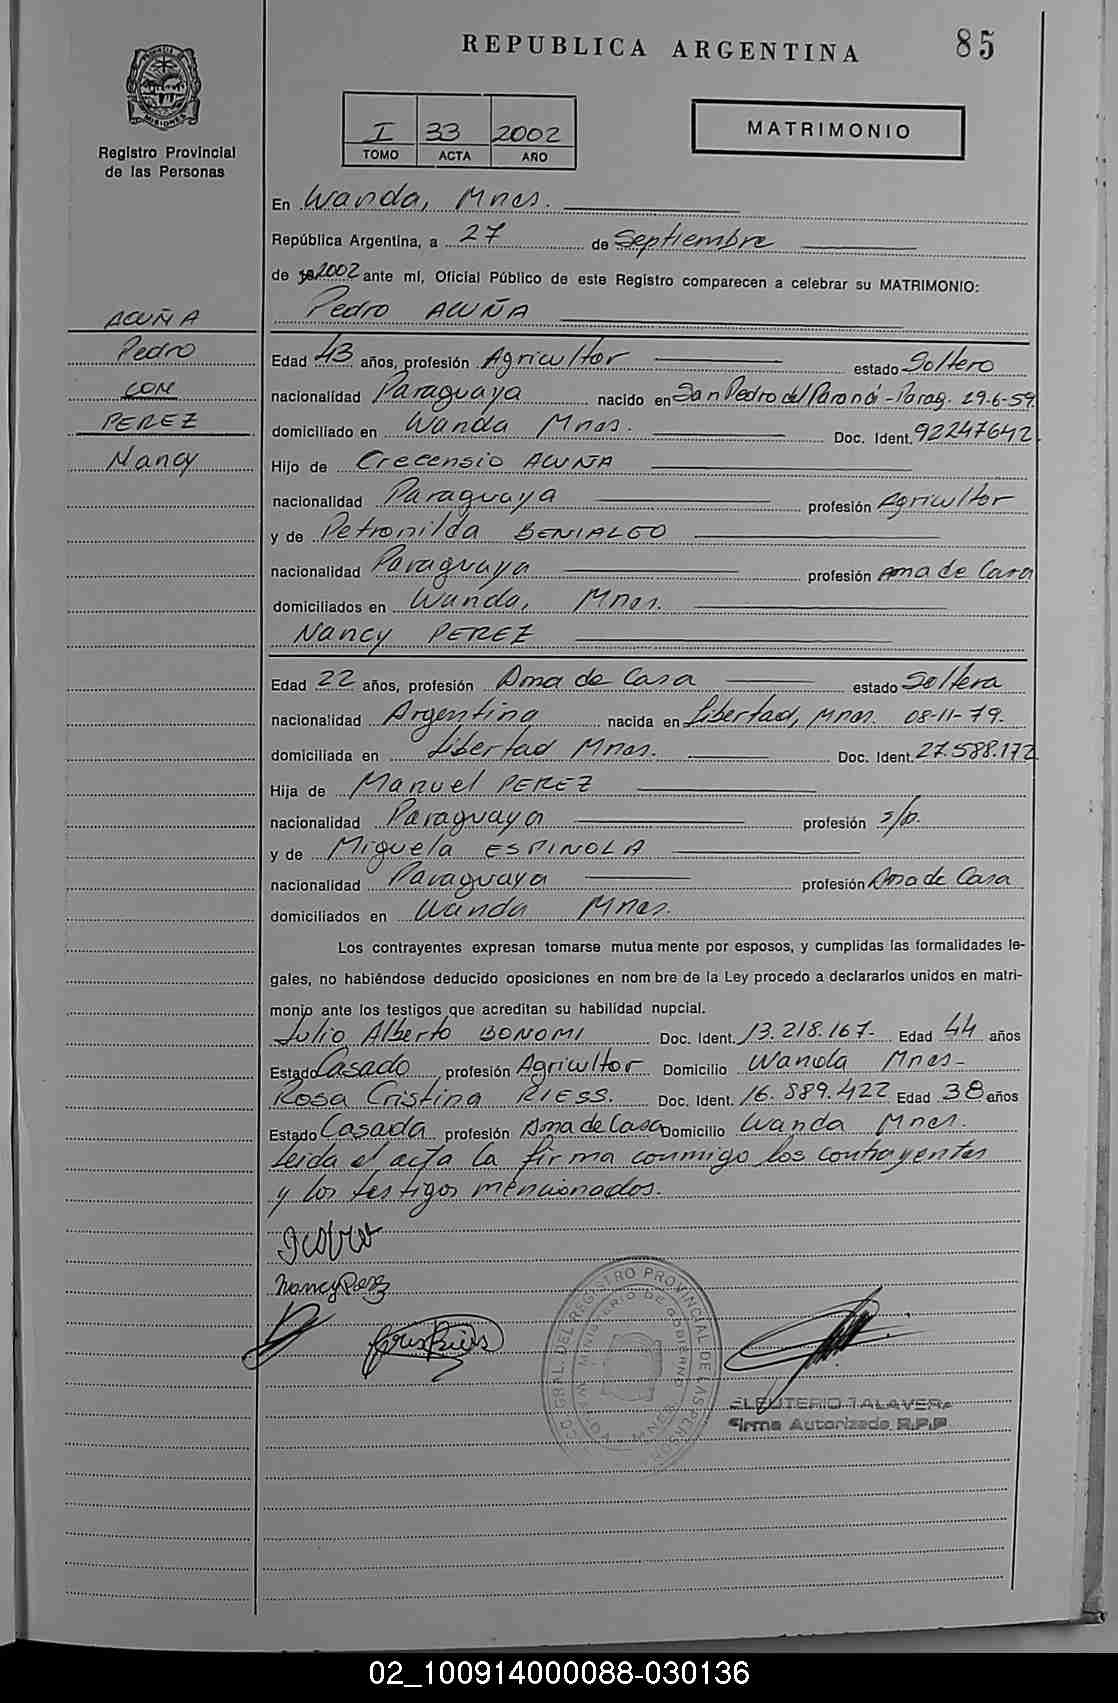 REPUBLICA ARGENTINA 85
MISIONES
Registro Provincial
de las Personas
I 33 2002
TOMO ACTA AÑO
MATRIMONIO
ACUÑA
Pedro
CON
PEREZ
Nancy
En Wanda, Mnes.
República Argentina, a 27 de Septiembre
de 2002 ante mí, Oficial Público de este Registro comparecen a celebrar su MATRIMONIO:
Pedro ACUÑA
Edad 43 años, profesión Agricultor estado Soltero
nacionalidad Paraguaya nacido en San Pedro del Paraná - Parag. 29-6-59.
domiciliado en Wanda Mnes. Doc. Ident. 92247642.
Hijo de Crecensio ACUÑA
nacionalidad Paraguaya profesión Agricultor
y de Petronilda BENIALGO
nacionalidad Paraguaya profesión Ama de Casa
domiciliados en Wanda, Mnes.
Nancy PEREZ
Edad 22 años, profesión Ama de Casa estado Soltera
nacionalidad Argentina nacida en Libertad, Mnes. 08-11-79.
domiciliada en Libertad Mnes. Doc. Ident. 27.588.172
Hija de Manuel PEREZ
nacionalidad Paraguaya profesión s/p.
y de Miguela ESPINOLA
nacionalidad Paraguaya profesión Ama de Casa
domiciliados en Wanda Mnes.
Los contrayentes expresan tomarse mutua mente por esposos, y cumplidas las formalidades le-
gales, no habiéndose deducido oposiciones en nom bre de la Ley procedo a declararlos unidos en matri-
monio ante los testigos que acreditan su habilidad nupcial.
Julio Alberto BONOMI Doc. Ident. 13.218.167- Edad 44 años
Estado Casado profesión Agricultor Domicilio Wanda Mnes-
Rosa Cristina RIESS. Doc. Ident. 16.889.422 Edad 38 años
Estado Casada profesión Ama de Casa Domicilio Wanda Mnes.
Leida el acta la firma conmigo los contrayentes
y los testigos mencionados.
Nancy Perez
GRAL. DEL REGISTRO PROVINCIAL DE LAS PERSON
MINISTERIO DE GOBIERNO
ELEUTERIO TALAVERA
Firma Autorizada R.P.P.
02_100914000088-030136